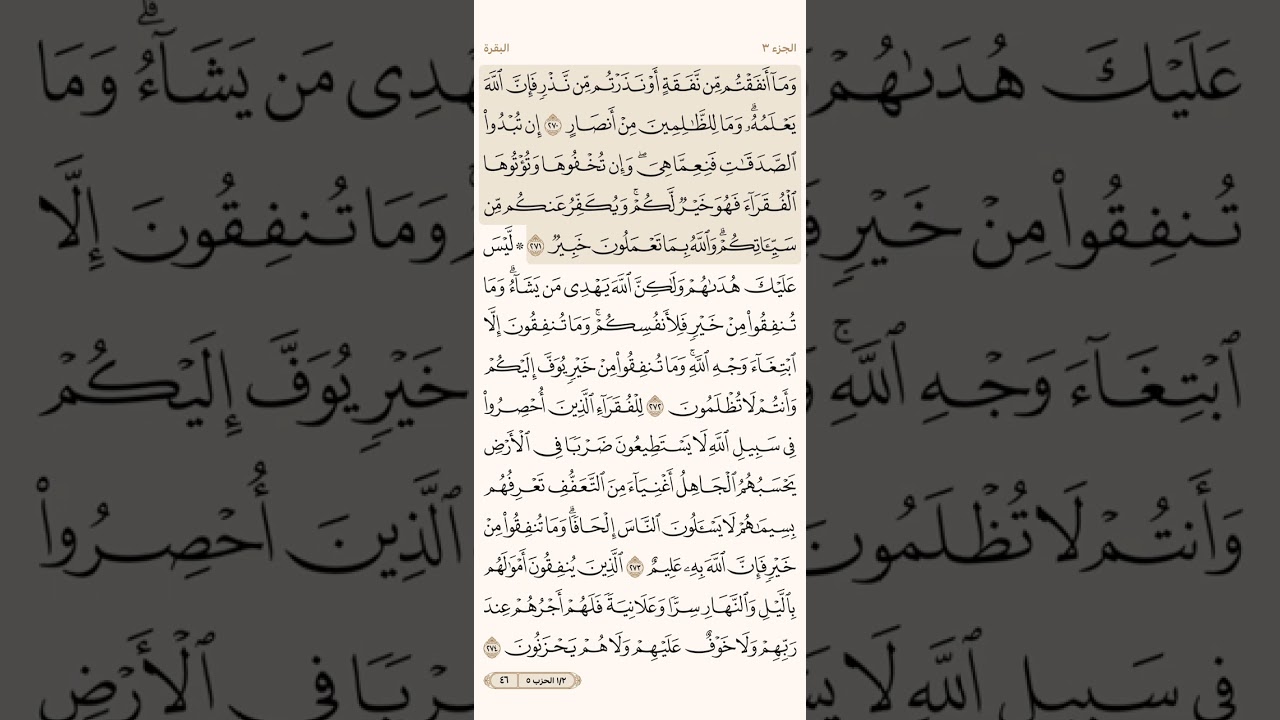 الجزء ٣ البقرة
وَمَآ أَنفَقْتُم مِّن نَّفَقَةٍ أَوْ نَذَرْتُم مِّن نَّذْرٍ فَإِنَّ ٱللَّهَ
يَعْلَمُهُۥۗ وَمَا لِلظَّٰلِمِينَ مِنْ أَنصَارٍ ٢٧٠ إِن تُبْدُوا۟
ٱلصَّدَقَٰتِ فَنِعِمَّا هِىَۖ وَإِن تُخْفُوهَا وَتُؤْتُوهَا
ٱلْفُقَرَآءَ فَهُوَ خَيْرٌ لَّكُمْۚ وَيُكَفِّرُ عَنكُم مِّن
سَيِّـَٔاتِكُمْۗ وَٱللَّهُ بِمَا تَعْمَلُونَ خَبِيرٌ ٢٧١ ۞ لَّيْسَ
عَلَيْكَ هُدَىٰهُمْ وَلَٰكِنَّ ٱللَّهَ يَهْدِى مَن يَشَآءُۗ وَمَا
تُنفِقُوا۟ مِنْ خَيْرٍ فَلِأَنفُسِكُمْۚ وَمَا تُنفِقُونَ إِلَّا
ٱبْتِغَآءَ وَجْهِ ٱللَّهِۚ وَمَا تُنفِقُوا۟ مِنْ خَيْرٍ يُوَفَّ إِلَيْكُمْ
وَأَنتُمْ لَا تُظْلَمُونَ ٢٧٢ لِلْفُقَرَآءِ ٱلَّذِينَ أُحْصِرُوا۟
فِى سَبِيلِ ٱللَّهِ لَا يَسْتَطِيعُونَ ضَرْبًا فِى ٱلْأَرْضِ
يَحْسَبُهُمُ ٱلْجَاهِلُ أَغْنِيَآءَ مِنَ ٱلتَّعَفُّفِ تَعْرِفُهُم
بِسِيمَٰهُمْ لَا يَسْـَٔلُونَ ٱلنَّاسَ إِلْحَافًاۗ وَمَا تُنفِقُوا۟ مِنْ
خَيْرٍ فَإِنَّ ٱللَّهَ بِهِۦ عَلِيمٌ ٢٧٣ ٱلَّذِينَ يُنفِقُونَ أَمْوَٰلَهُم
بِٱلَّيْلِ وَٱلنَّهَارِ سِرًّا وَعَلَانِيَةً فَلَهُمْ أَجْرُهُمْ عِندَ
رَبِّهِمْ وَلَا خَوْفٌ عَلَيْهِمْ وَلَا هُمْ يَحْزَنُونَ ٢٧٤
١/٢ الحزب ٥ ٤٦